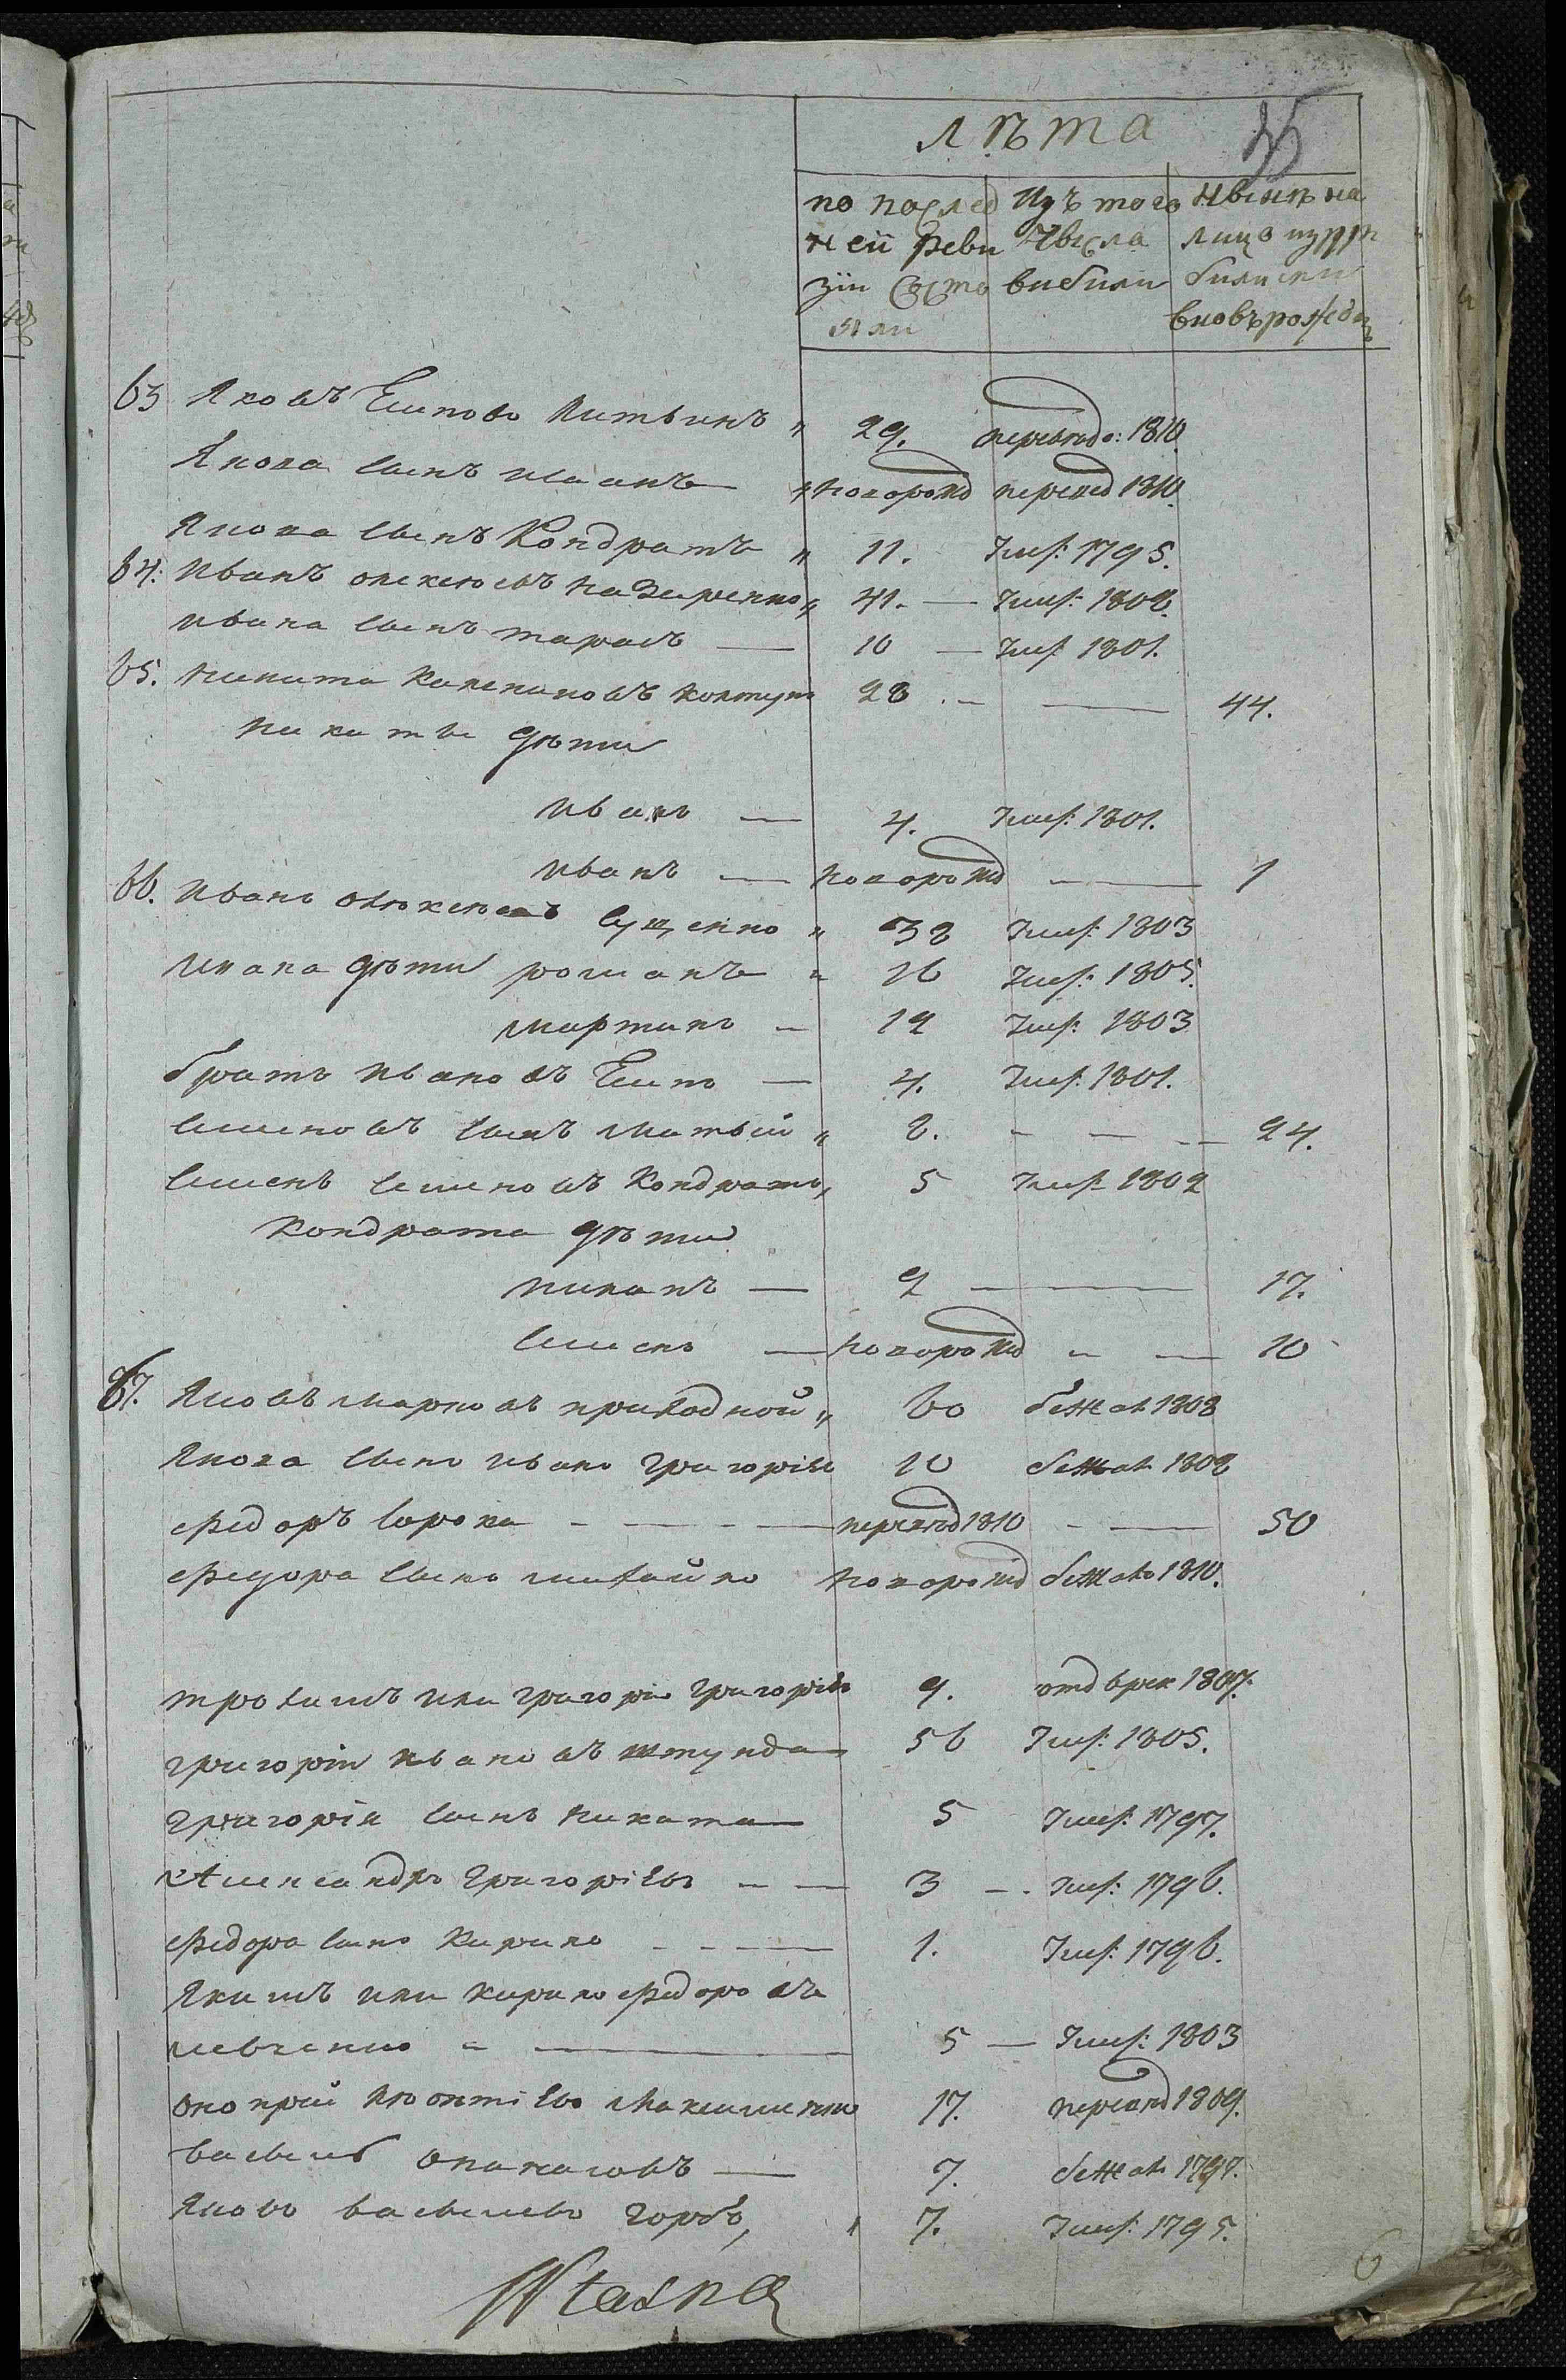 лѣта 35
по послед Изъ того Нынѣ на
ней реви числа лицо изъ при
зіи состо выбили были или
яли вновърожден
63 Яковъ Есиповъ Литвинъ " 29. перевед: 1810
Якова сынъ Иванъ " новорожд перевед 1810.
Якова сынъ Кондратъ " 11. Умер: 1795.
64: Иванъ Алексеевъ Назаренко " 41. — Умер: 1808.
Ивана сынъ тарасъ — 10 — Умер 1801.
65. Никита Калениковъ Колтун 28. — — 44.
Никиты дѣти
Иванъ — 4. Умер: 1801.
Иванъ — новорожд — 1
66. Иванъ Алексеевъ Сущенко " 38 Умер: 1803
Ивана дѣти романъ " 16 Умер: 1805.
мартинъ — 12 Умер: 1803
братъ Ивановъ Есипъ — 4. Умер: 1801.
Семеновъ сынъ Матвій " 8. — — — 24.
Семенъ Семеновъ Кондратъ, 5 Умер 1802
Кондрата дѣти
— 2 — 17.
Семенъ — новорожд — — 10
67. Яковъ марковъ приходной " 60 бежал 1808
Якова сынъ Иванъ григоріев 10 бежал 1808
Федоръ Сорока — — — перевед 1810 — — 50
Федора сынъ михайло новорожд бежалъ 1810.
трохимъ или григорій григоріевъ 9. отд врек 1807.
григорій Ивановъ штунда 56 Умер: 1805.
григорія сынъ Никита 5 Умер: 1797.
Александръ григоріевъ — — 3 — Умер: 1796.
Федора сынъ Кирило — — — 1. Умер: 1796.
Якимъ или Кирило Федоровъ
левченко — 5 — Умер: 1803
онопрій леонтіевъ Максименко 17. перевед 1809.
василь опанасовъ — 7. бежалъ 1797.
Яковъ васильевъ горбъ, " 7. Умер: 1795.
6